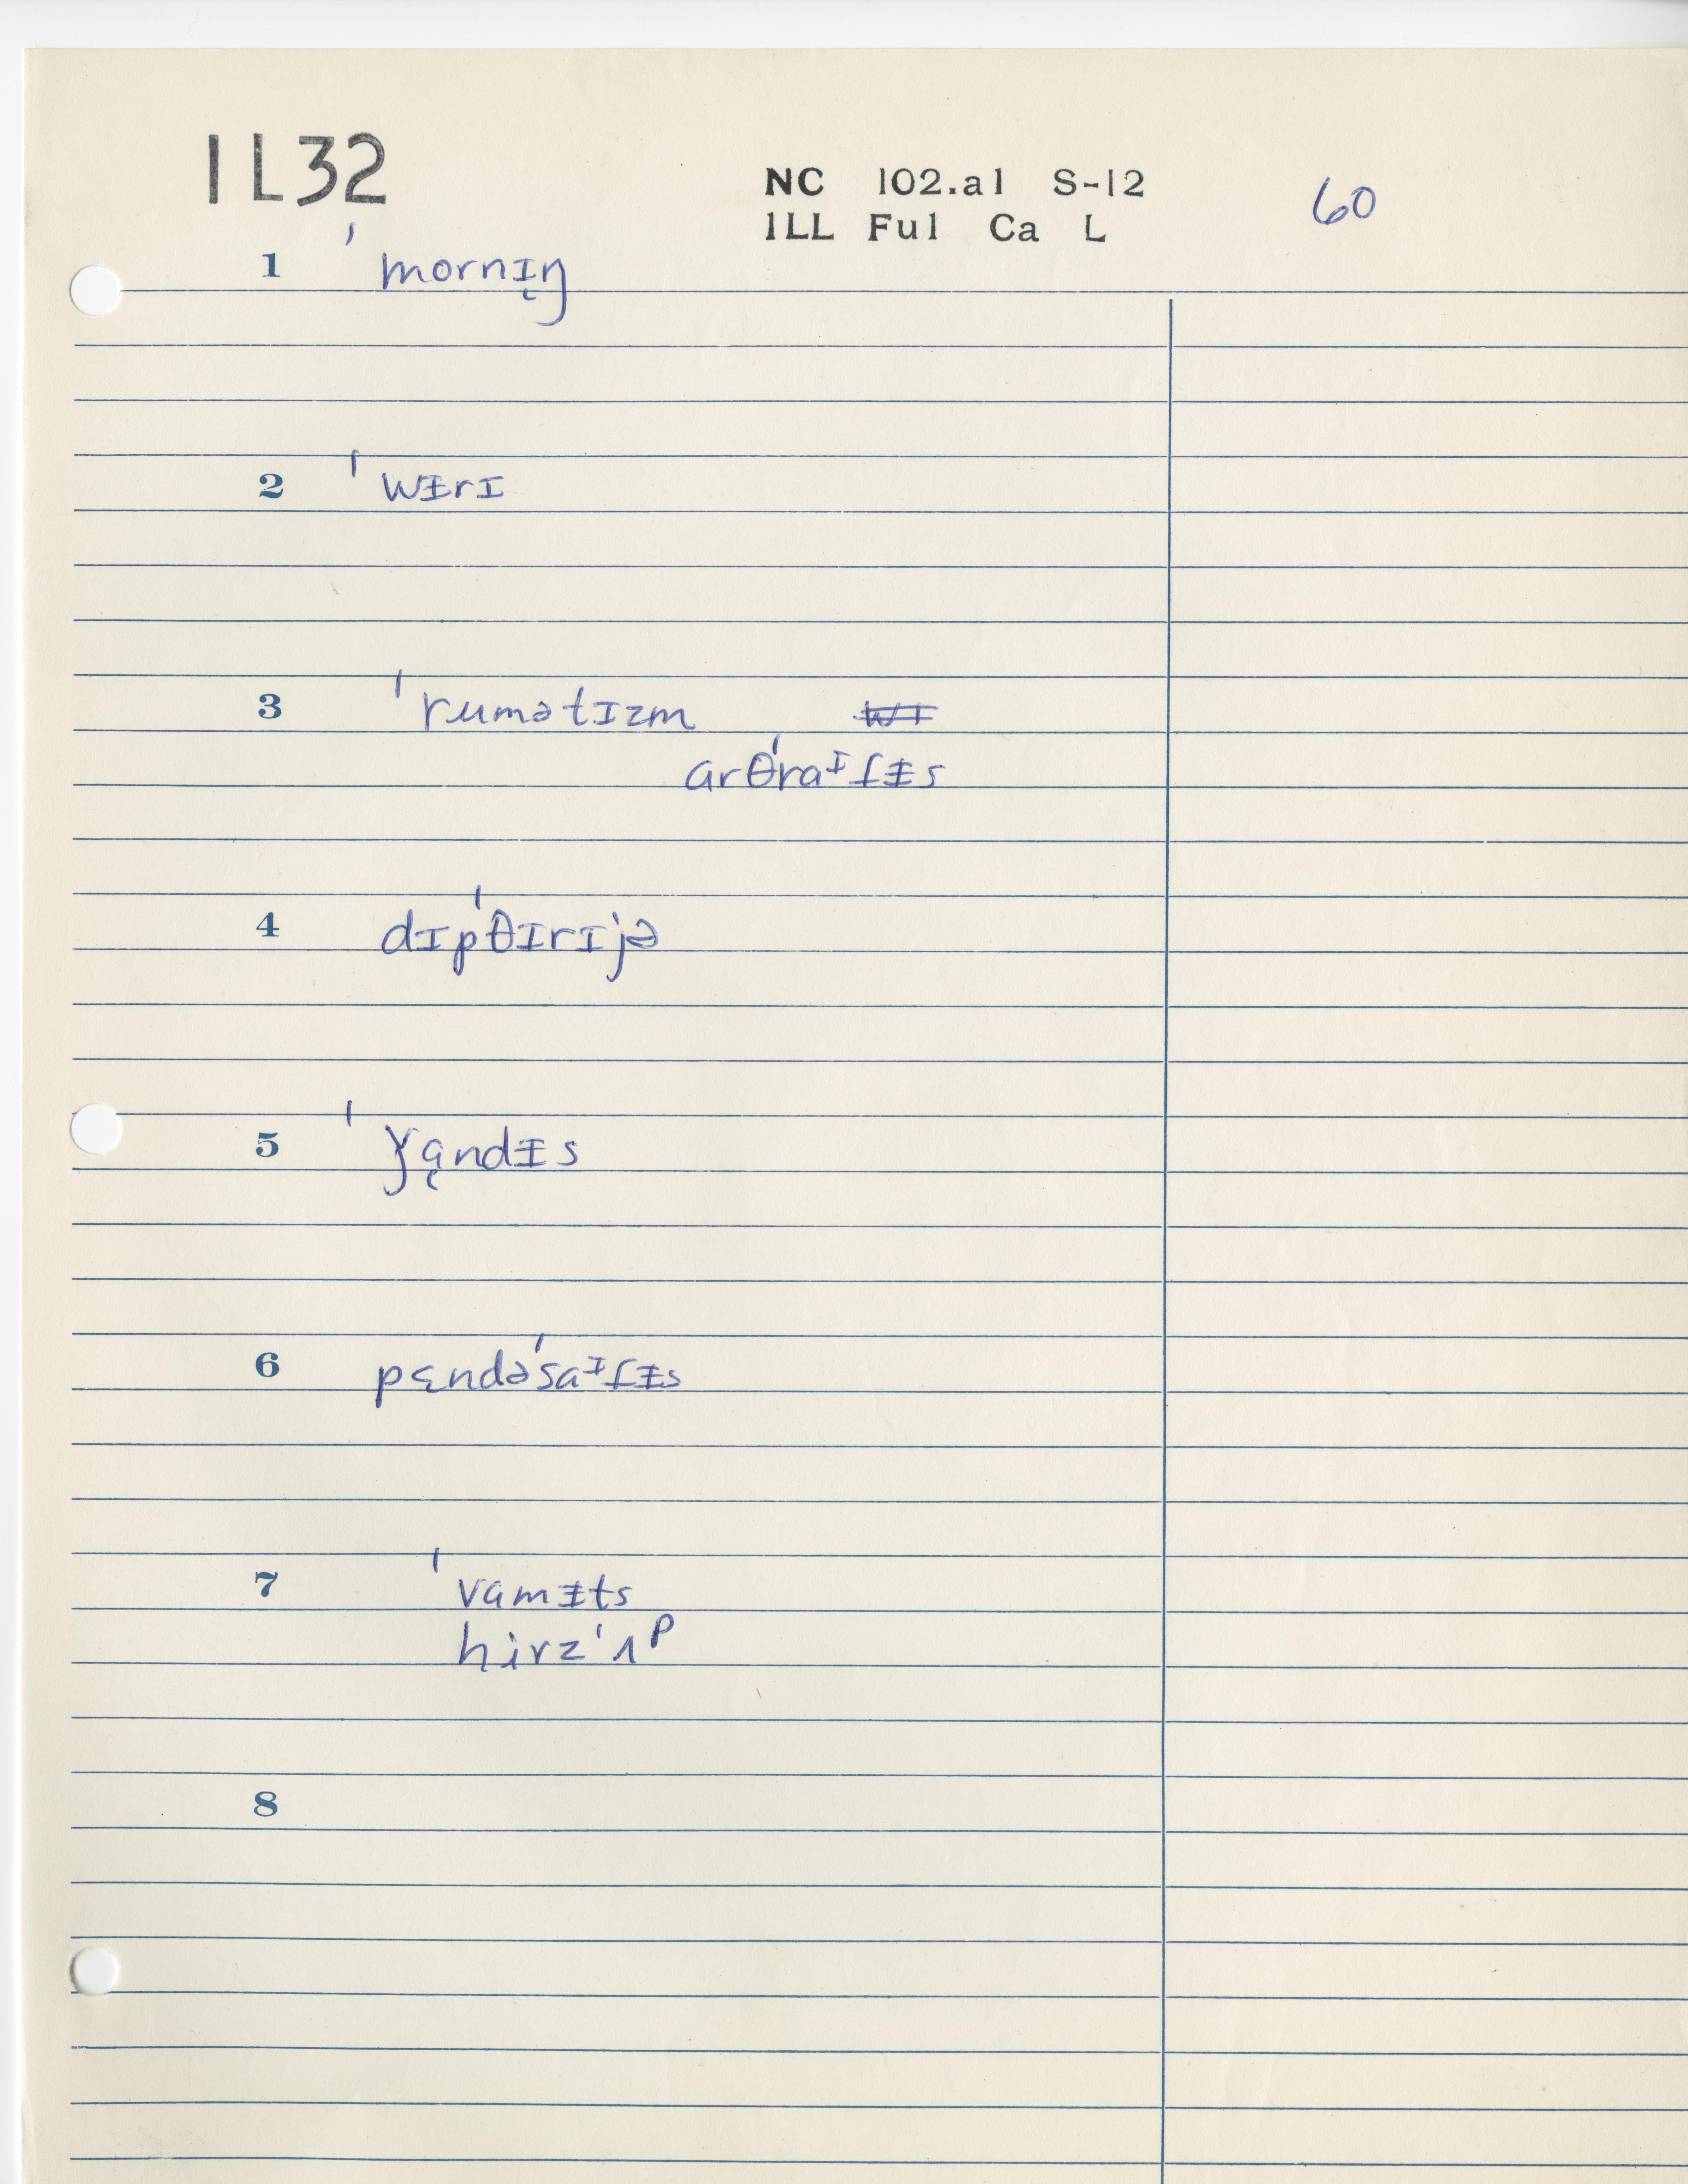 IL32
NC 102.a1 S-12 60
ILL Ful Ca L
1 ˈmornɪ̜ŋ
2 ˈwᵻrɪ
3 ˈrumətɪzm
arˈθraᶦɾᵻs
4 dɪpˈθɪrɪjə
5 ˈǰɑ̜ndᵻs
6 pɛndəˈsaᶦɾᵻs
7 ˈvɑmᵻts
hirzˈʌᵖ
8